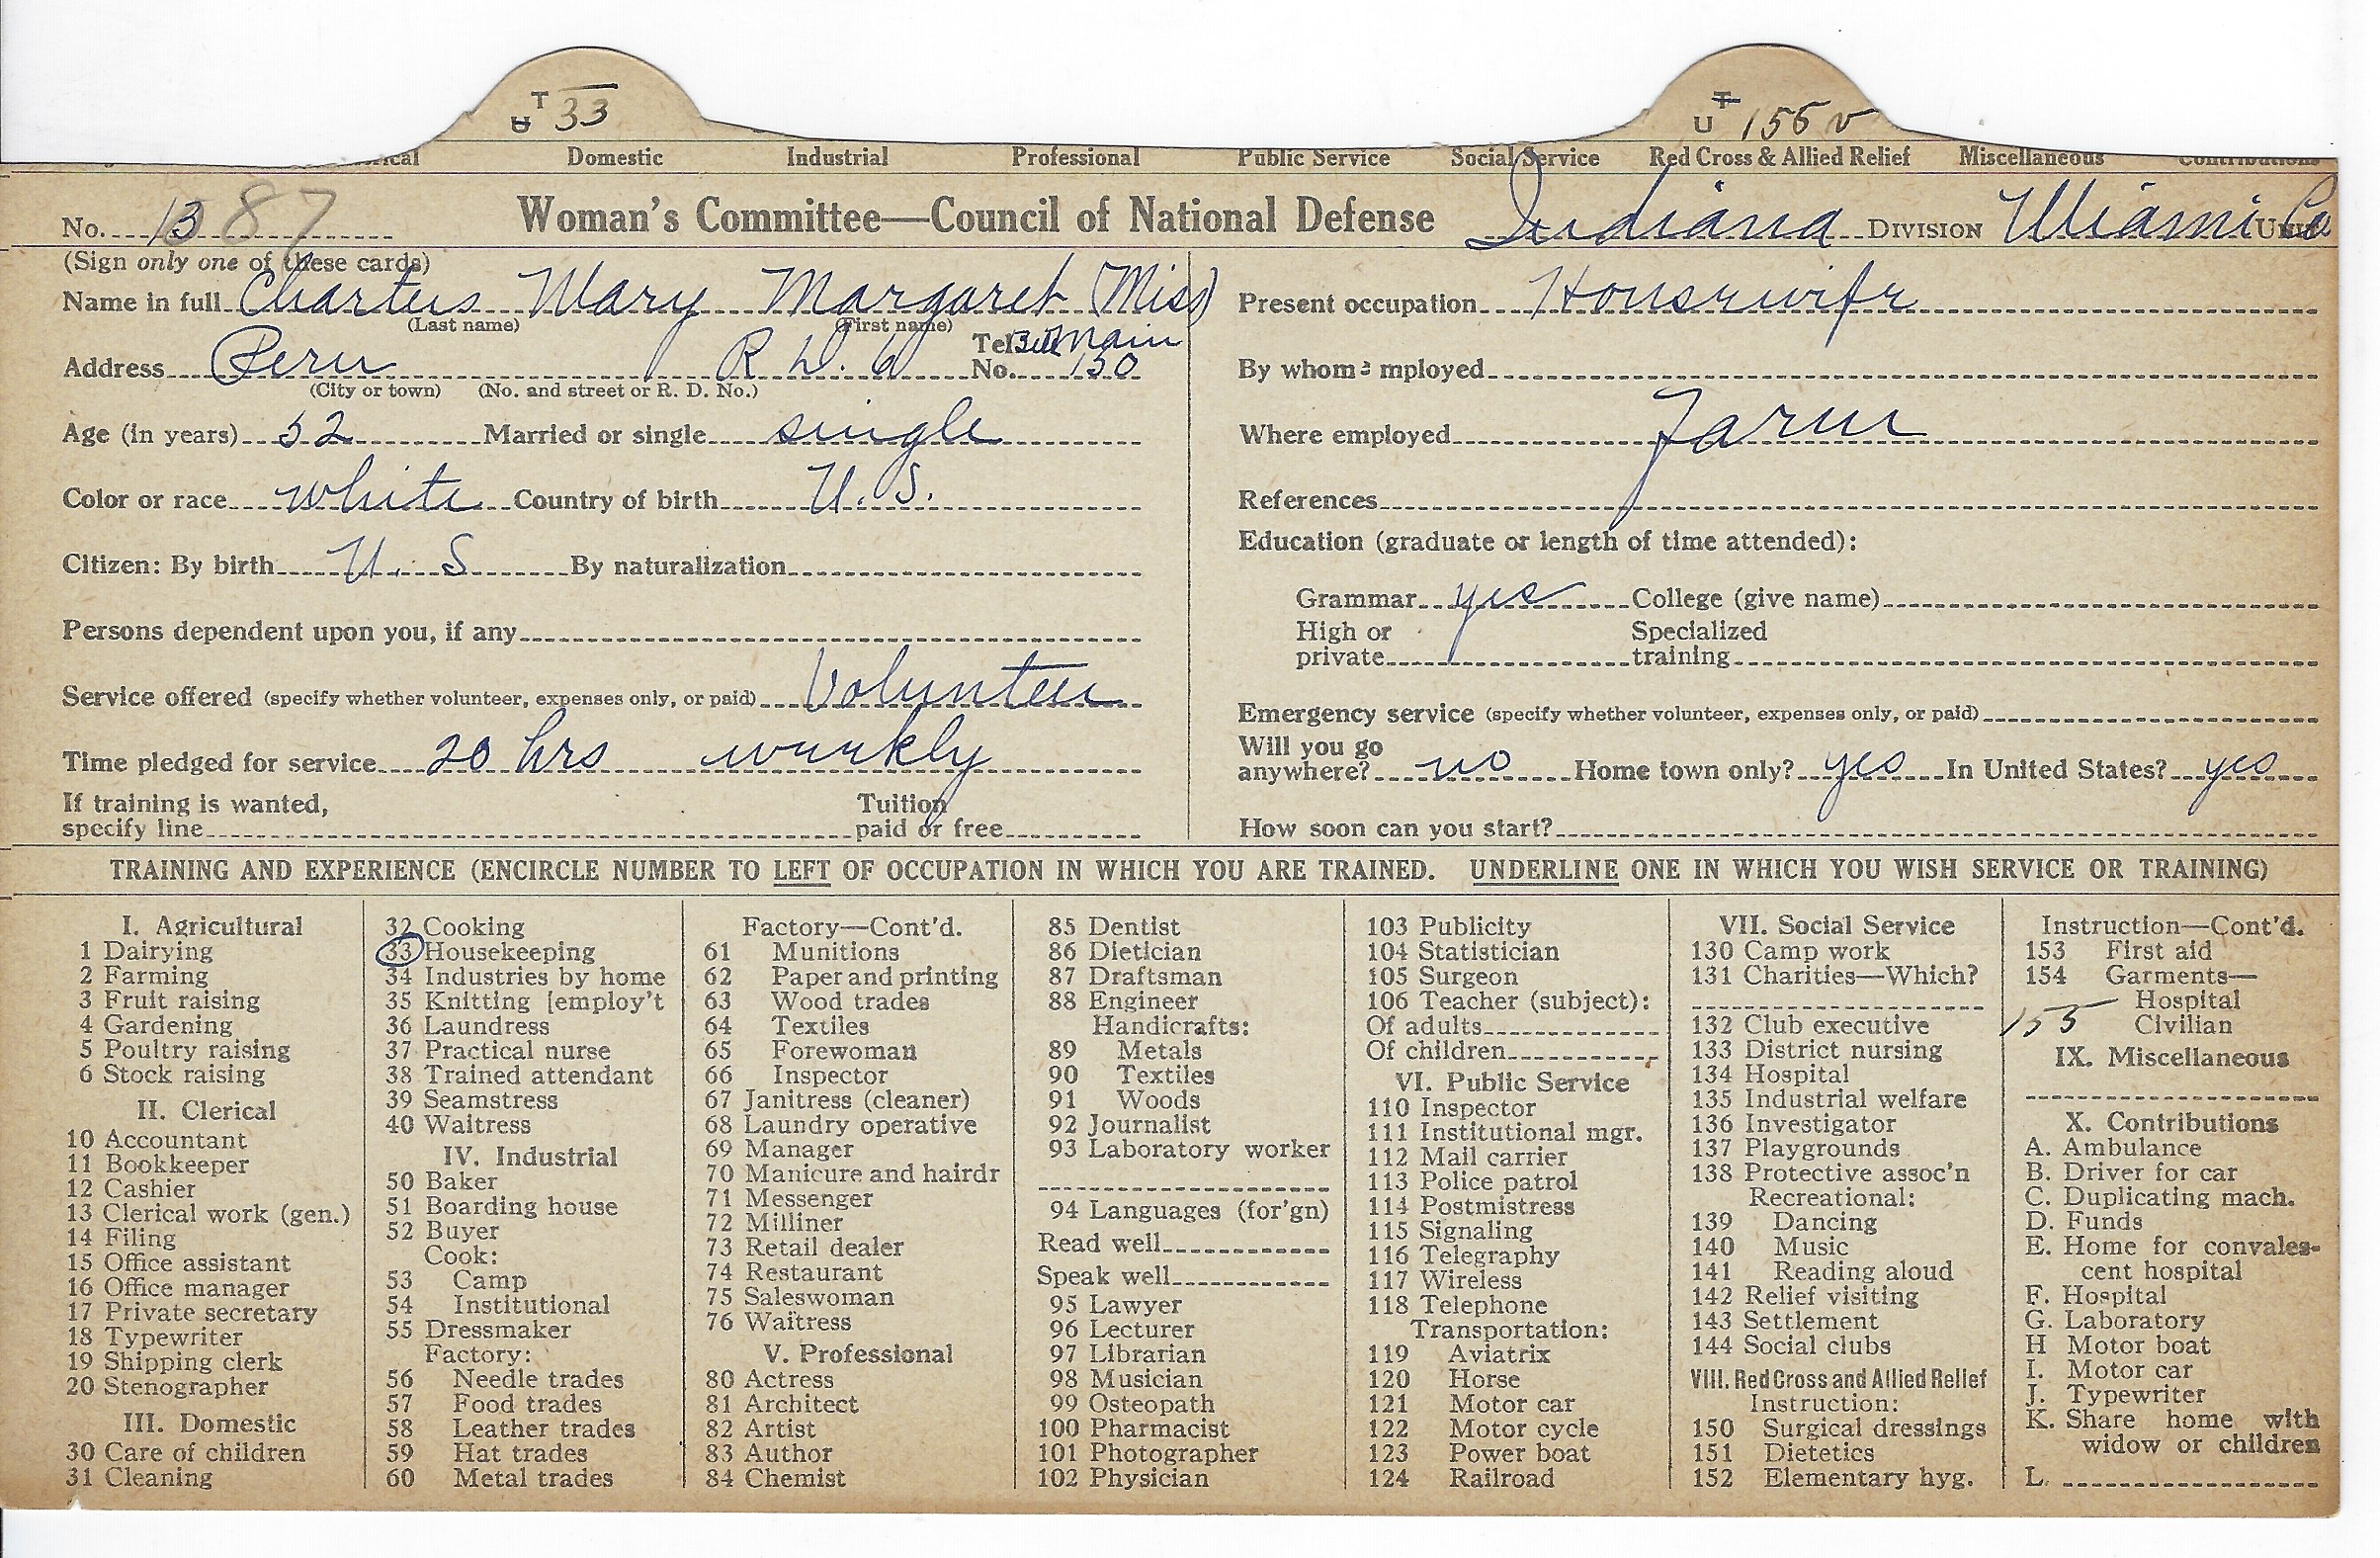 T
U 33
T
U 155 v
Domestic Industrial Professional Public Service Social Service Red Cross & Allied Relief Miscellaneous Contributions
No. 1387 Woman's Committee—Council of National Defense Indiana DIVISION Miami Co UNIT
(Sign only one of these cards)
Name in full Charters Mary Margaret (Miss)
(Last name) (First name)
Address Peru R D. 6 Tel. No. Bell Main 130
(City or town) (No. and street or R. D. No.)
Age (in years) 52 Married or single single
Color or race white Country of birth U. S.
Citizen: By birth U. S By naturalization
Persons dependent upon you, if any
Service offered (specify whether volunteer, expenses only, or paid) Volunteer
Time pledged for service 20 hrs weekly
If training is wanted,
specify line Tuition paid or free
Present occupation Housewife
By whom employed
Where employed Farm
References
Education (graduate or length of time attended):
Grammar yes College (give name)
High or private Specialized training
Emergency service (specify whether volunteer, expenses only, or paid)
Will you go anywhere? no Home town only? yes In United States? yes
How soon can you start?
TRAINING AND EXPERIENCE (ENCIRCLE NUMBER TO LEFT OF OCCUPATION IN WHICH YOU ARE TRAINED. UNDERLINE ONE IN WHICH YOU WISH SERVICE OR TRAINING)
I. Agricultural
1 Dairying
2 Farming
3 Fruit raising
4 Gardening
5 Poultry raising
6 Stock raising
II. Clerical
10 Accountant
11 Bookkeeper
12 Cashier
13 Clerical work (gen.)
14 Filing
15 Office assistant
16 Office manager
17 Private secretary
18 Typewriter
19 Shipping clerk
20 Stenographer
III. Domestic
30 Care of children
31 Cleaning
32 Cooking
33 Housekeeping
34 Industries by home
35 Knitting [employ't
36 Laundress
37 Practical nurse
38 Trained attendant
39 Seamstress
40 Waitress
IV. Industrial
50 Baker
51 Boarding house
52 Buyer
Cook:
53 Camp
54 Institutional
55 Dressmaker
Factory:
56 Needle trades
57 Food trades
58 Leather trades
59 Hat trades
60 Metal trades
Factory—Cont'd.
61 Munitions
62 Paper and printing
63 Wood trades
64 Textiles
65 Forewoman
66 Inspector
67 Janitress (cleaner)
68 Laundry operative
69 Manager
70 Manicure and hairdr
71 Messenger
72 Milliner
73 Retail dealer
74 Restaurant
75 Saleswoman
76 Waitress
V. Professional
80 Actress
81 Architect
82 Artist
83 Author
84 Chemist
85 Dentist
86 Dietician
87 Draftsman
88 Engineer
Handicrafts:
89 Metals
90 Textiles
91 Woods
92 Journalist
93 Laboratory worker
94 Languages (for'gn)
Read well
Speak well
95 Lawyer
96 Lecturer
97 Librarian
98 Musician
99 Osteopath
100 Pharmacist
101 Photographer
102 Physician
103 Publicity
104 Statistician
105 Surgeon
106 Teacher (subject):
Of adults
Of children
VI. Public Service
110 Inspector
111 Institutional mgr.
112 Mail carrier
113 Police patrol
114 Postmistress
115 Signaling
116 Telegraphy
117 Wireless
118 Telephone
Transportation:
119 Aviatrix
120 Horse
121 Motor car
122 Motor cycle
123 Power boat
124 Railroad
VII. Social Service
130 Camp work
131 Charities—Which?
132 Club executive
133 District nursing
134 Hospital
135 Industrial welfare
136 Investigator
137 Playgrounds
138 Protective assoc'n
Recreational:
139 Dancing
140 Music
141 Reading aloud
142 Relief visiting
143 Settlement
144 Social clubs
VIII. Red Cross and Allied Relief
Instruction:
150 Surgical dressings
151 Dietetics
152 Elementary hyg.
Instruction—Cont'd.
153 First aid
154 Garments—
Hospital
155 Civilian
IX. Miscellaneous
X. Contributions
A. Ambulance
B. Driver for car
C. Duplicating mach.
D. Funds
E. Home for convales-
cent hospital
F. Hospital
G. Laboratory
H Motor boat
I. Motor car
J. Typewriter
K. Share home with
widow or children
L.